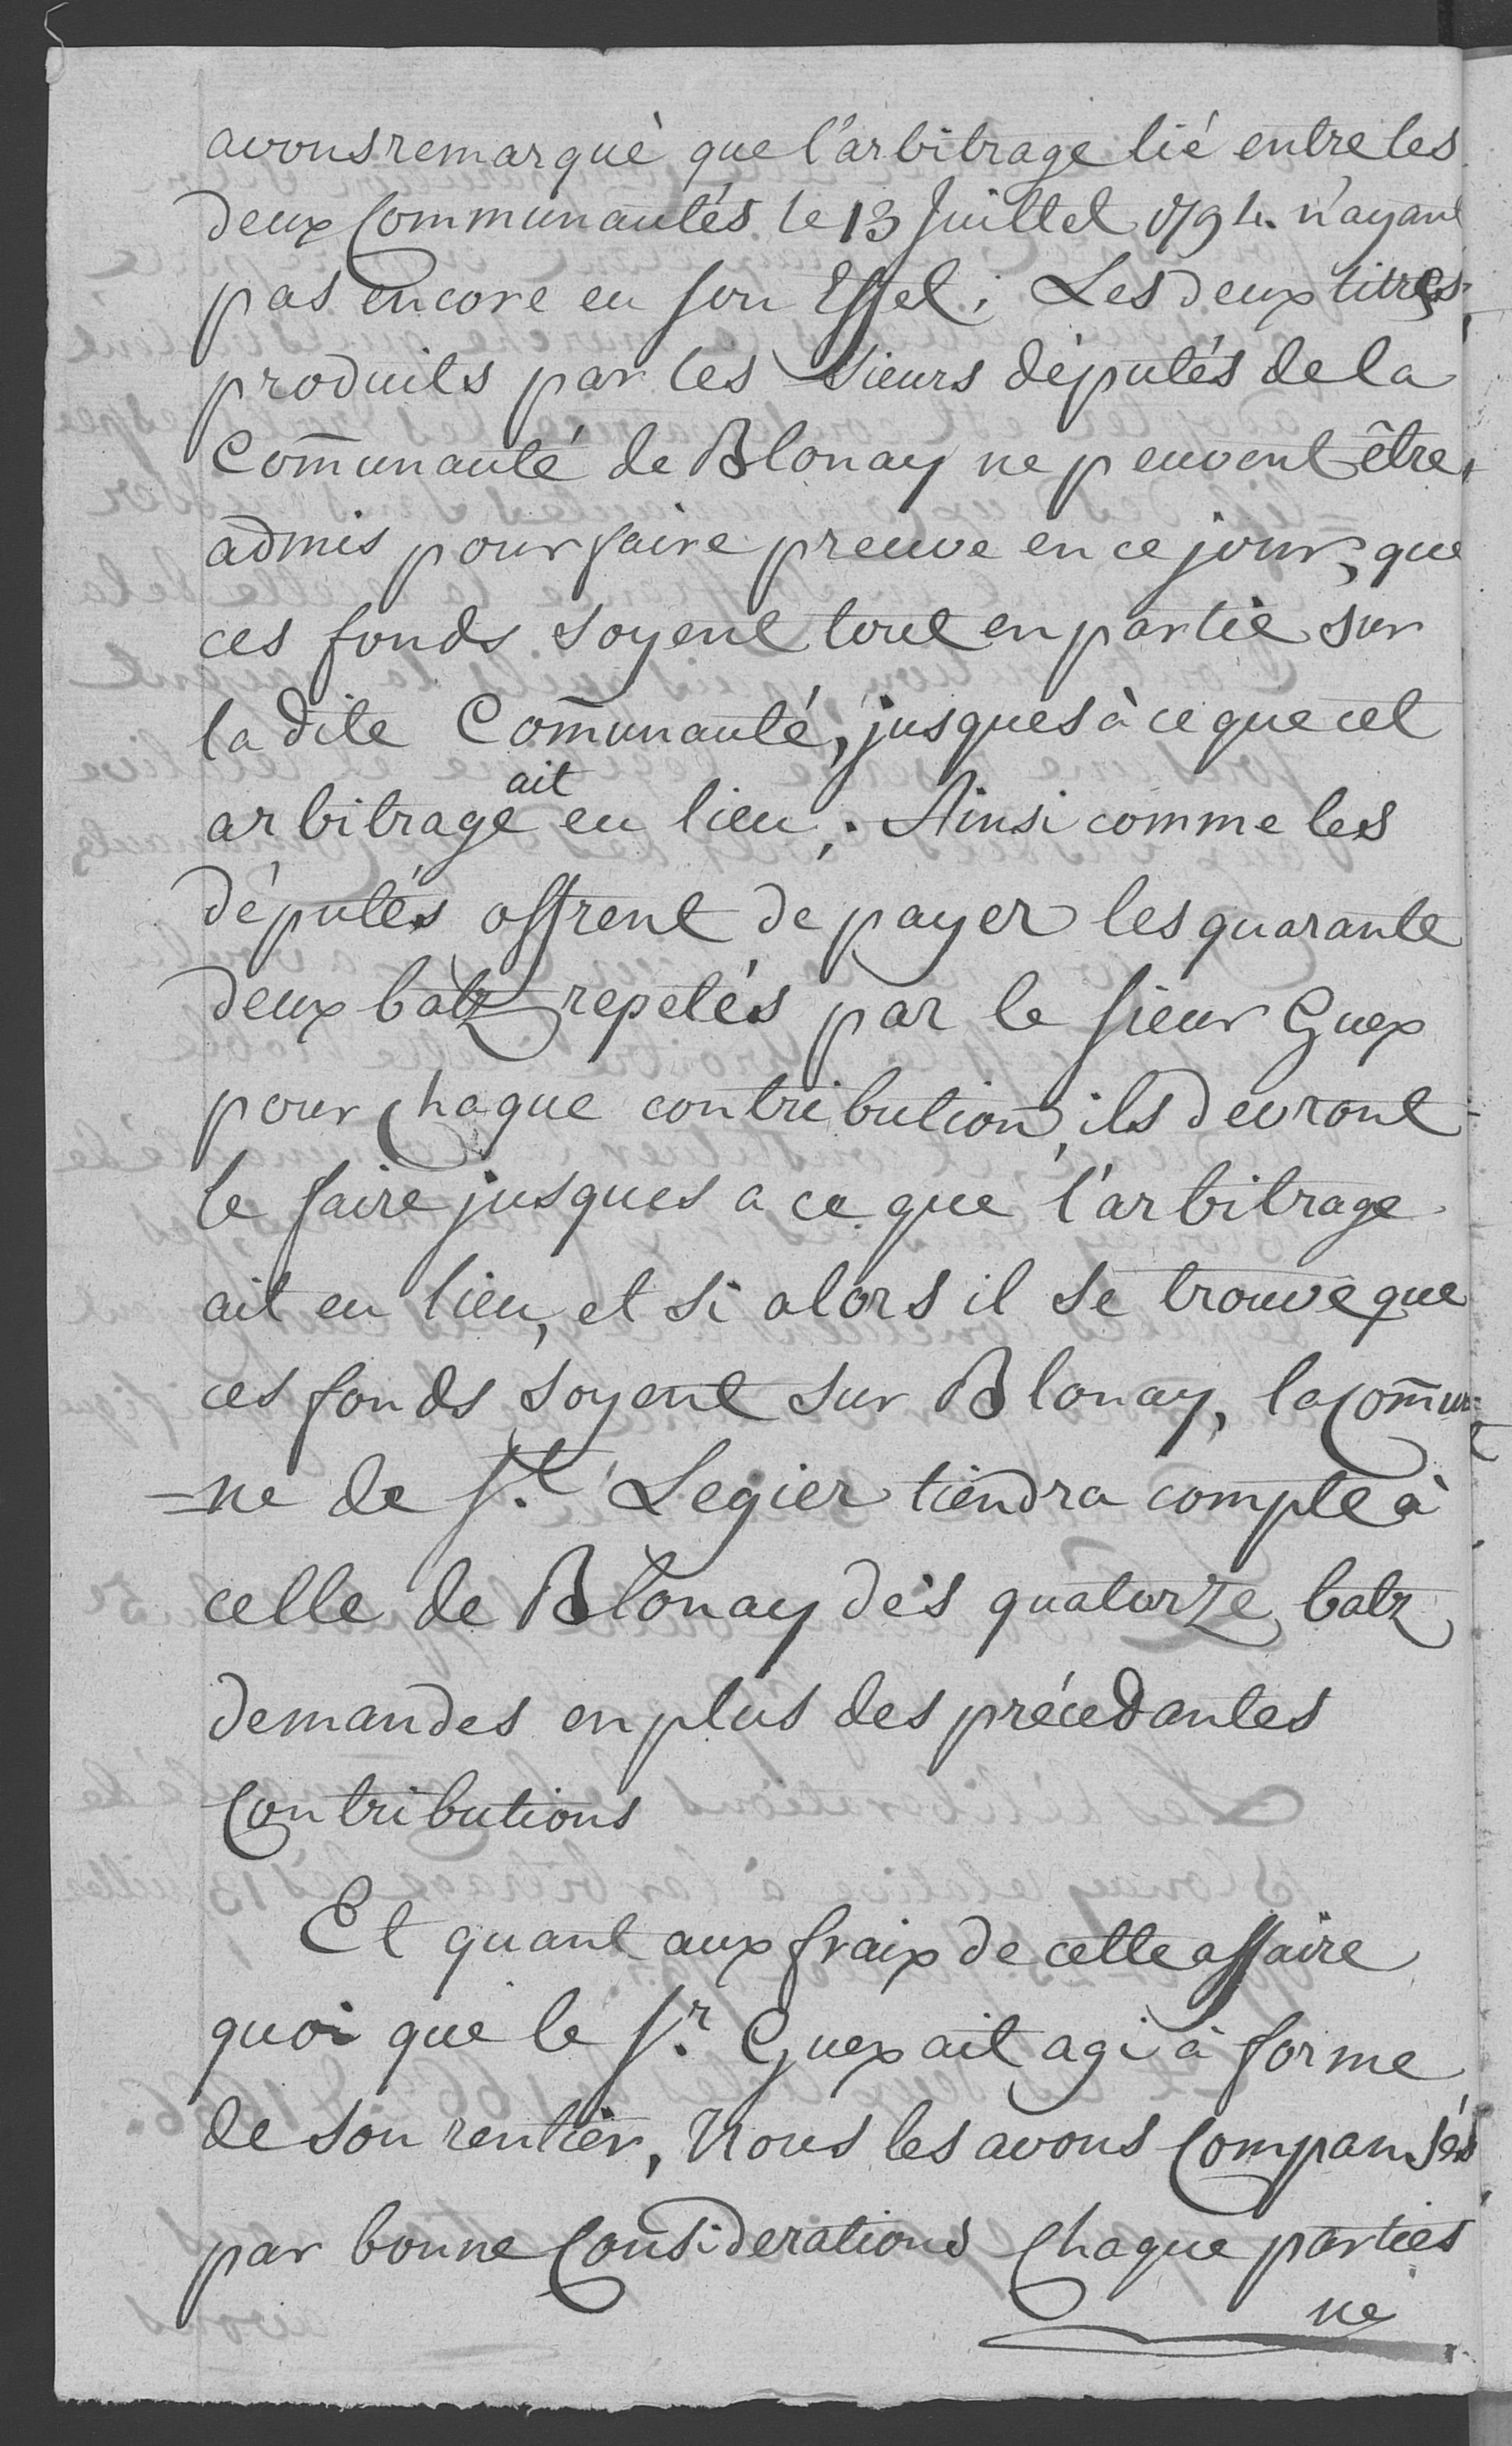 avons remarqué que l'arbitrage lié entre les
deux Communautés le 13 Juillet 1794. n'ayant
pas encore eu son Effet; Les deux titres
produits par les Sieurs députés de la
Com̄unauté de Blonay ne peuvent être
admis pour faire preuve en ce jour, que
ces fonds soyent tout en partie sur
la dite Com̄unauté, jusques à ce que cet
arbitrage ait eu lieu; Ainsi comme les
députés offrent de payer les quarante
deux batz repetés par le sieur Guex
pour chaque contribution, ils devront
le faire jusques a ce que l'arbitrage
ait eu lieu, et si alors il se trouve que
ces fonds soyent sur Blonay, la Com̄u=
=ne de St. Legier tiendra compte à
celle de Blonay dès quatorze batz
demandes en plus des précedantes
Contributions
Et quant aux fraix de cette affaire
quoi que le Sr. Guex ait agi à forme
de son rentier, Nous les avons Compansés
par bonne Considerations Chaque parties
ne